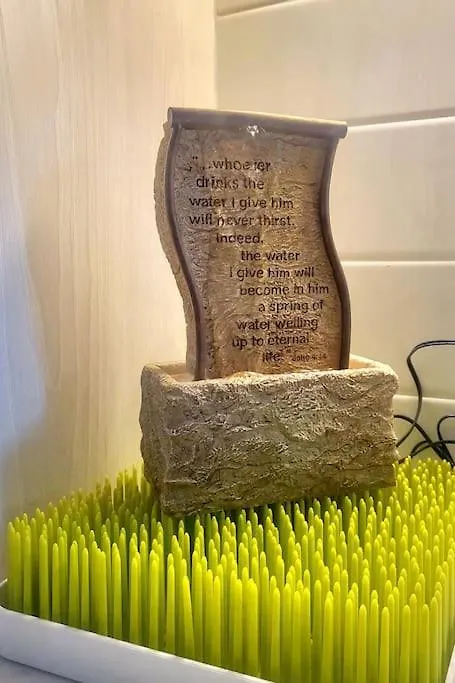 "...whoever
drinks the
water I give him
will never thirst.
Indeed,
the water
I give him will
become in him
a spring of
water welling
up to eternal
life." John 4:14